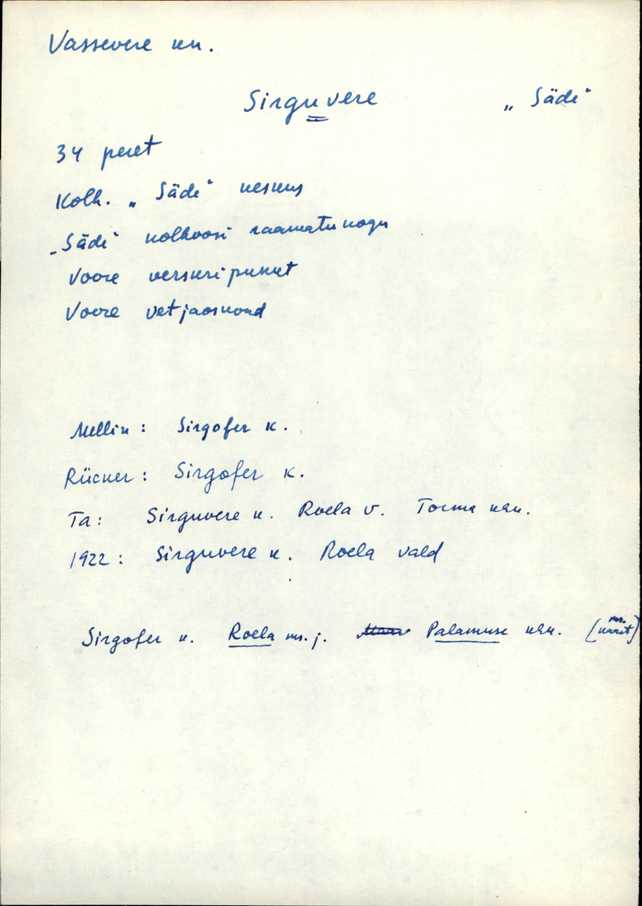 Vassevere kn.
Sirguvere „Säde"
34 peret
Kolh. „Säde" keskus
„Säde" kolhoosi raamatukogu
Voore velskripunkt
Voore vetjaoskond
Mellin: Sirgofer k.
Rücker: Sirgofer k.
Ta: Sirguvere k. Roela v. Torma khk.
1922: Sirguvere k. Roela vald
Sirgofer k. Roela ms. j. Palamuse khk.